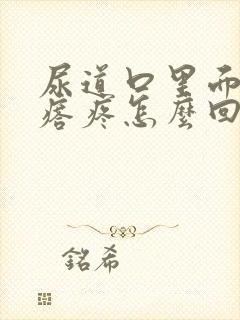 尿道口里而
瘩疼怎麼回
銘希